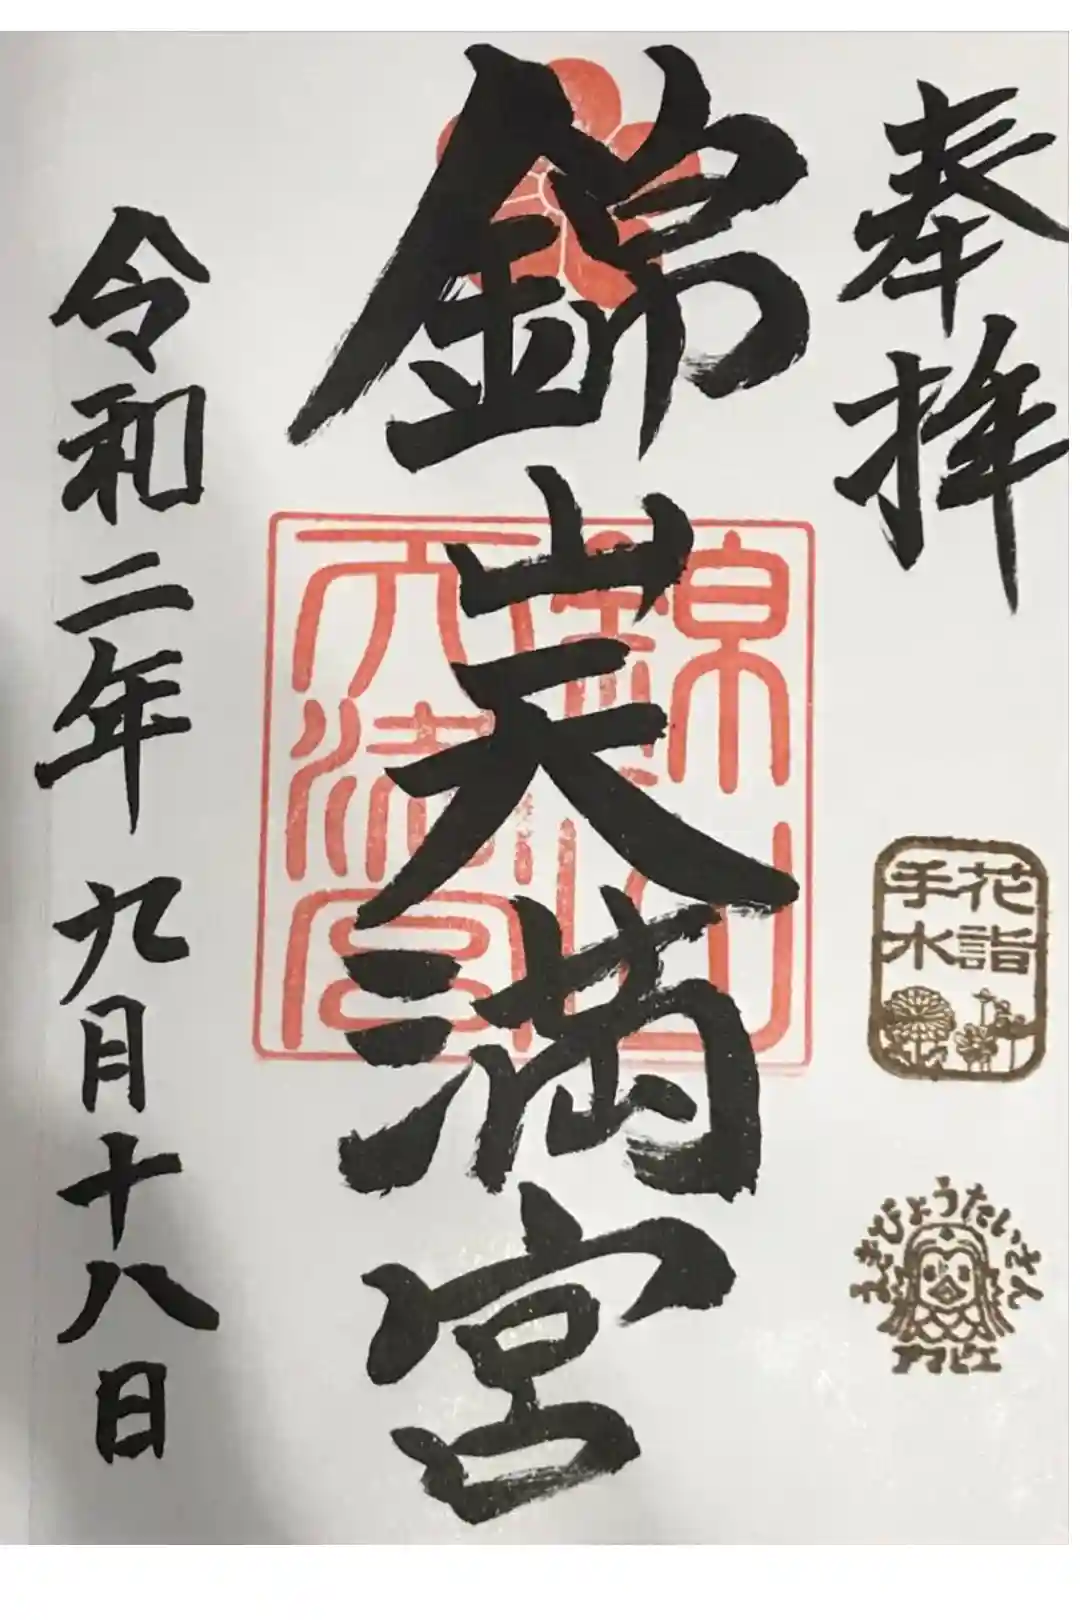 奉拝
花詣
手水
えきびょうたいさん
アマビエ
錦山天満宮
錦山
天満宮
令和二年九月十八日